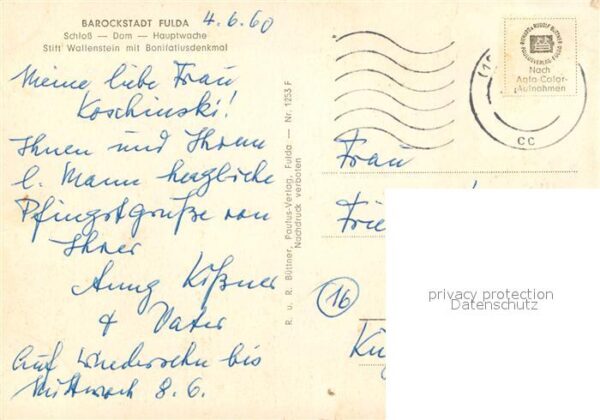 BAROCKSTADT FULDA
Schloß — Dom — Hauptwache
Stift Wallenstein mit Bonifatiusdenkmal
4.6.60
Meine liebe Frau
Koschinski!
Ihnen und Ihrem
l. Mann herzliche
Pfingstgrüße von
Ihrer
Anny Kißner
& Vater
Auf Wiedersehn bis
Mittwoch 8.6.
R. u. R. Büttner, Paulus-Verlag, Fulda — Nr. 1253 F
Nachdruck verboten
Nach
Agfa-Color-
Aufnahmen
cc
Frau
Frie
16
privacy protection
Datenschutz